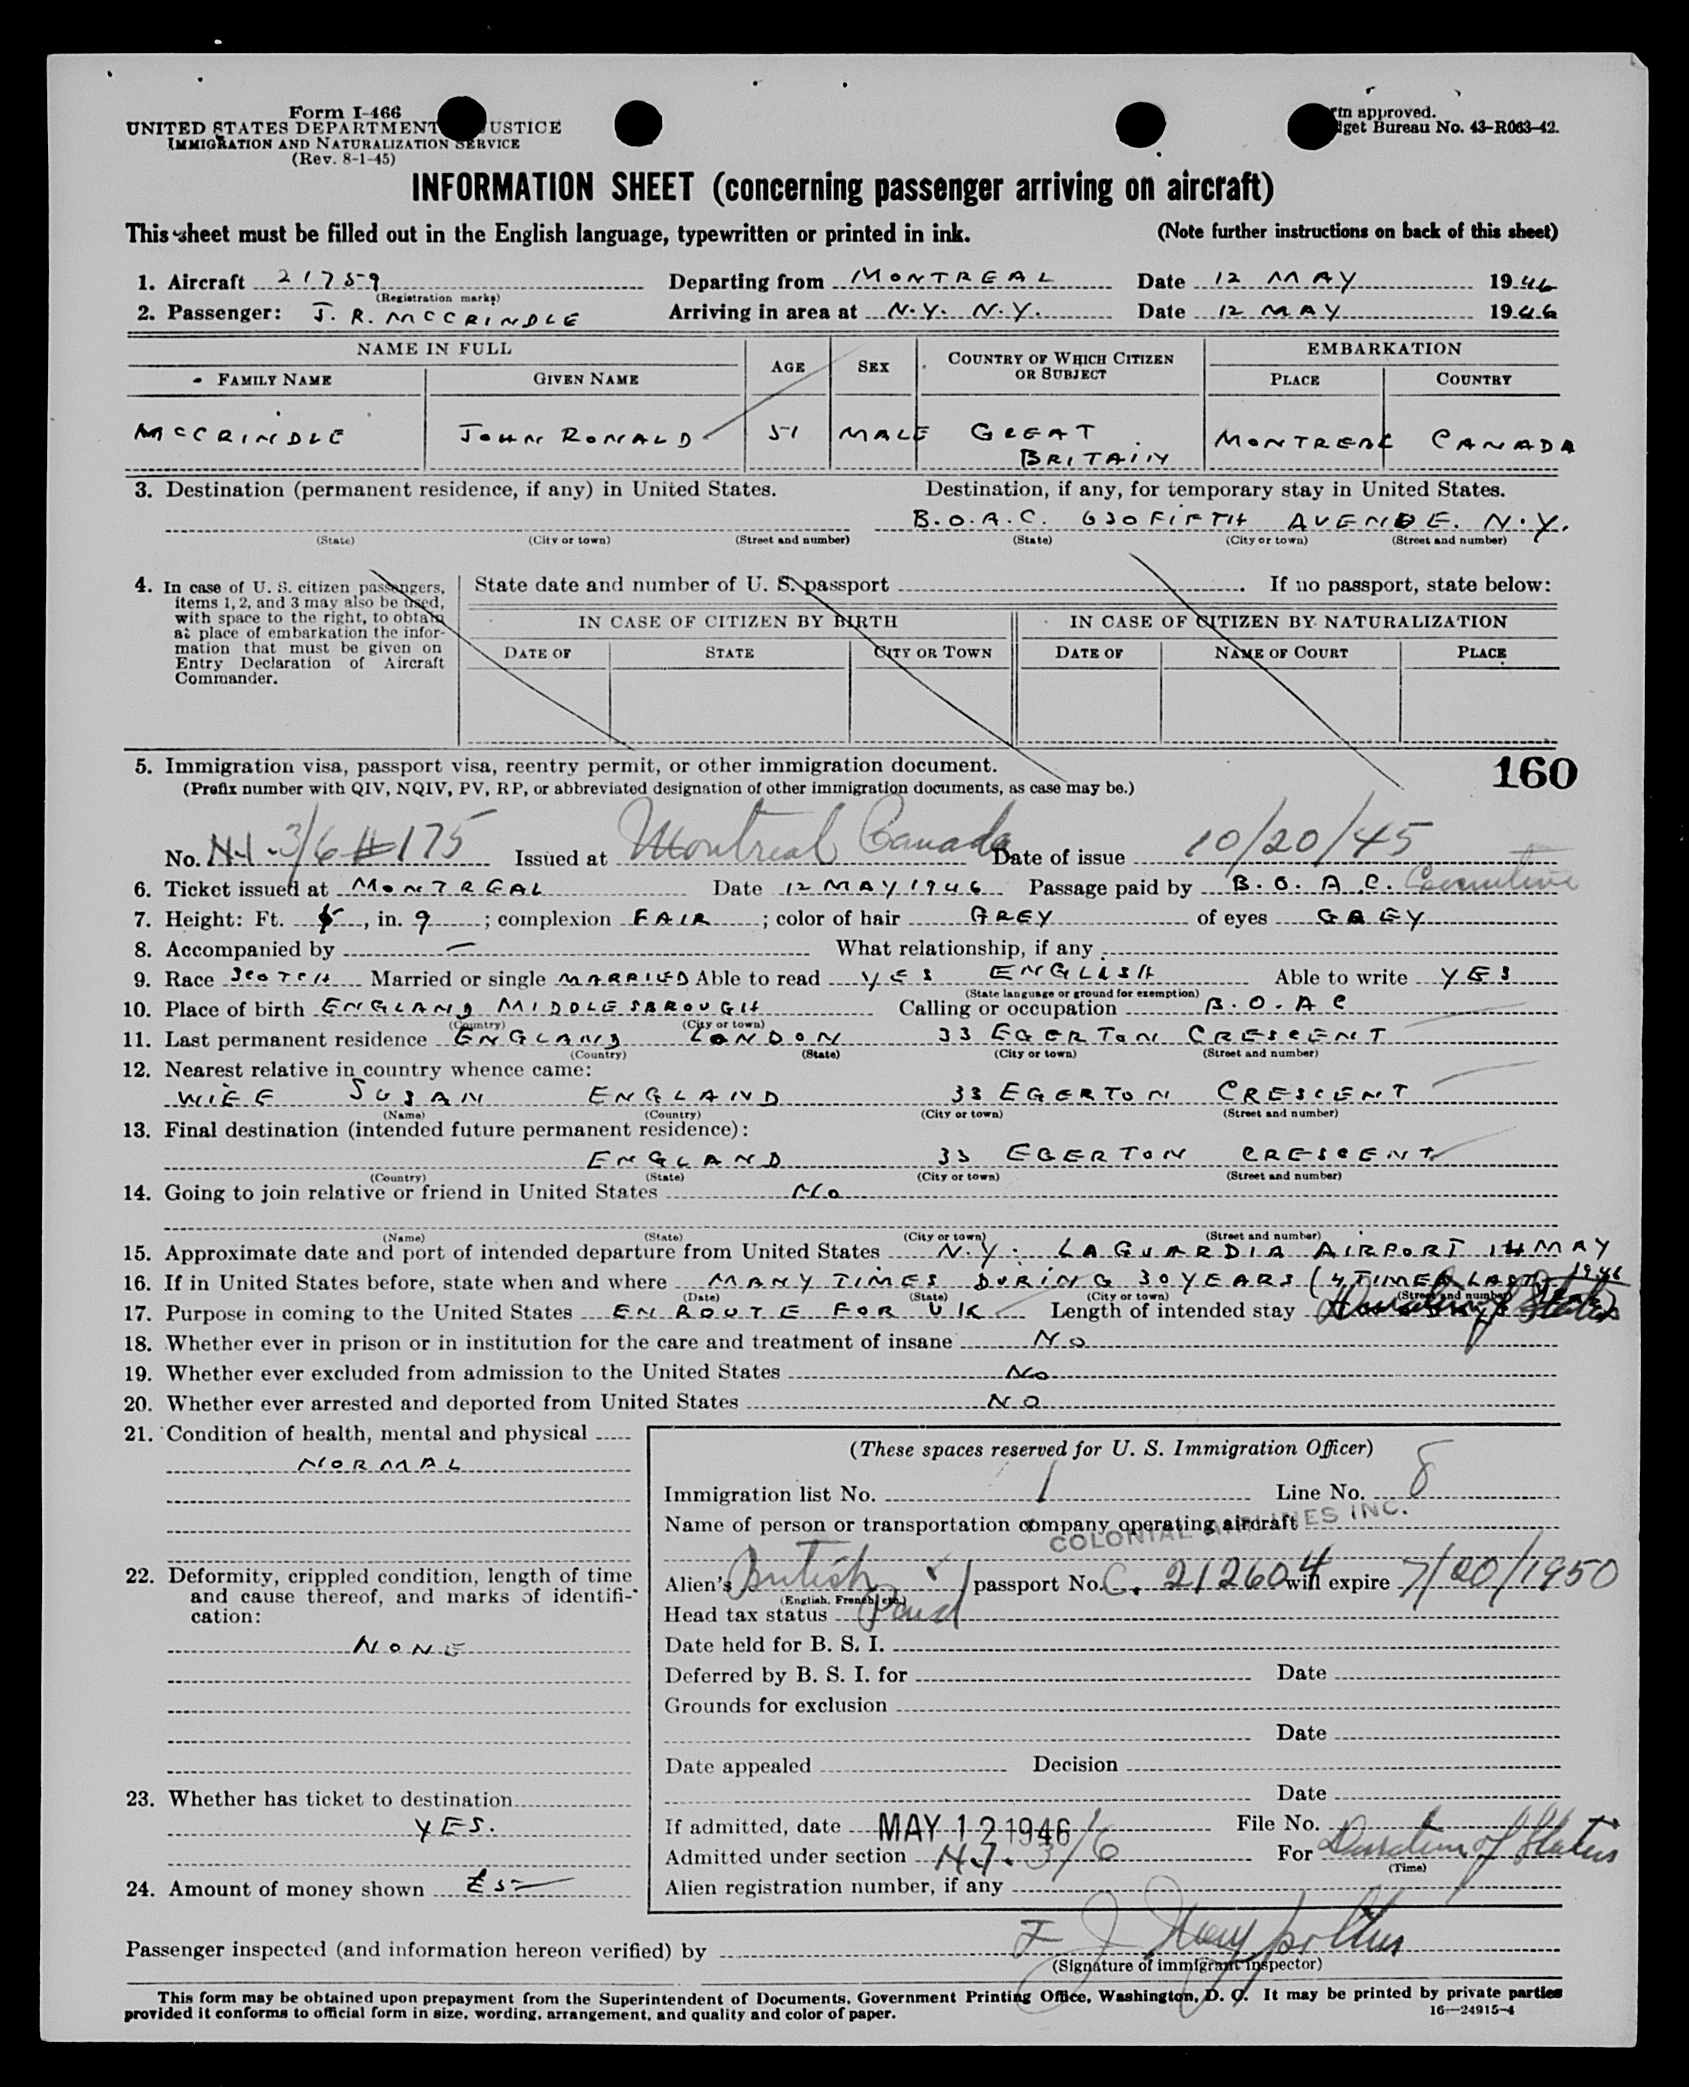 Form I-466
UNITED STATES DEPARTMENT JUSTICE
IMMIGRATION AND NATURALIZATION SERVICE
(Rev. 8-1-45)
approved.
Bureau No. 43-R063-42.
INFORMATION SHEET (concerning passenger arriving on aircraft)
This sheet must be filled out in the English language, typewritten or printed in ink. (Note further instructions on back of this sheet)
1. Aircraft 21759 Departing from MONTREAL Date 12 MAY 1946
(Registration marks)
2. Passenger: J. R. MCCRINDLE Arriving in area at N.Y. N.Y. Date 12 MAY 1946
NAME IN FULL AGE SEX COUNTRY OF WHICH CITIZEN OR SUBJECT EMBARKATION
FAMILY NAME GIVEN NAME PLACE COUNTRY
MCCRINDLE JOHN RONALD 51 MALE GREAT BRITAIN MONTREAL CANADA
3. Destination (permanent residence, if any) in United States. Destination, if any, for temporary stay in United States.
B.O.A.C. 630 FIFTH AVENUE. N.Y.
(State) (City or town) (Street and number) (State) (City or town) (Street and number)
4. In case of U. S. citizen passengers, items 1, 2, and 3 may also be used, with space to the right, to obtain at place of embarkation the information that must be given on Entry Declaration of Aircraft Commander.
State date and number of U. S. passport . If no passport, state below:
IN CASE OF CITIZEN BY BIRTH IN CASE OF CITIZEN BY NATURALIZATION
DATE OF STATE CITY OR TOWN DATE OF NAME OF COURT PLACE
5. Immigration visa, passport visa, reentry permit, or other immigration document. 160
(Prefix number with QIV, NQIV, PV, RP, or abbreviated designation of other immigration documents, as case may be.)
No. N.I. 3/6 # 175 Issued at Montreal Canada Date of issue 10/20/45
6. Ticket issued at MONTREAL Date 12 MAY 1946 Passage paid by B.O.A.C. Executive
7. Height: Ft. 5, in. 9; complexion FAIR; color of hair GREY of eyes GREY
8. Accompanied by — What relationship, if any
9. Race SCOTCH Married or single MARRIED Able to read YES ENGLISH Able to write YES
(State language or ground for exemption)
10. Place of birth ENGLAND MIDDLESBROUGH Calling or occupation B.O.A C
(Country) (City or town)
11. Last permanent residence ENGLAND LONDON 33 EGERTON CRESCENT
(Country) (State) (City or town) (Street and number)
12. Nearest relative in country whence came:
WIFE SUSAN ENGLAND 33 EGERTON CRESCENT
(Name) (Country) (City or town) (Street and number)
13. Final destination (intended future permanent residence):
ENGLAND 33 EGERTON CRESCENT
(Country) (State) (City or town) (Street and number)
14. Going to join relative or friend in United States NO
(Name) (State) (City or town) (Street and number)
15. Approximate date and port of intended departure from United States N.Y. LA GUARDIA AIRPORT 14 MAY 1946
16. If in United States before, state when and where MANY TIMES DURING 30 YEARS (4 TIMES LAST
(Date) (State) (City or town) (Street and number)
17. Purpose in coming to the United States EN ROUTE FOR UK Length of intended stay Duration of Status
18. Whether ever in prison or in institution for the care and treatment of insane NO
19. Whether ever excluded from admission to the United States NO
20. Whether ever arrested and deported from United States NO
21. Condition of health, mental and physical
NORMAL
22. Deformity, crippled condition, length of time and cause thereof, and marks of identification:
NONE
23. Whether has ticket to destination
YES.
24. Amount of money shown £5
(These spaces reserved for U. S. Immigration Officer)
Immigration list No. 1 Line No. 8
Name of person or transportation company operating aircraft
COLONIAL AIRLINES INC.
Alien's British passport No. C. 212604 will expire 7/20/1950
(English, French, etc.)
Head tax status Paid
Date held for B. S. I.
Deferred by B. S. I. for Date
Grounds for exclusion
Date
Date appealed Decision
Date
If admitted, date MAY 12 1946 File No.
Admitted under section N.I. 3/6 For Duration of Status
(Time)
Alien registration number, if any
Passenger inspected (and information hereon verified) by
(Signature of immigrant inspector)
This form may be obtained upon prepayment from the Superintendent of Documents, Government Printing Office, Washington, D. C. It may be printed by private parties
provided it conforms to official form in size, wording, arrangement, and quality and color of paper. 16—24915-4